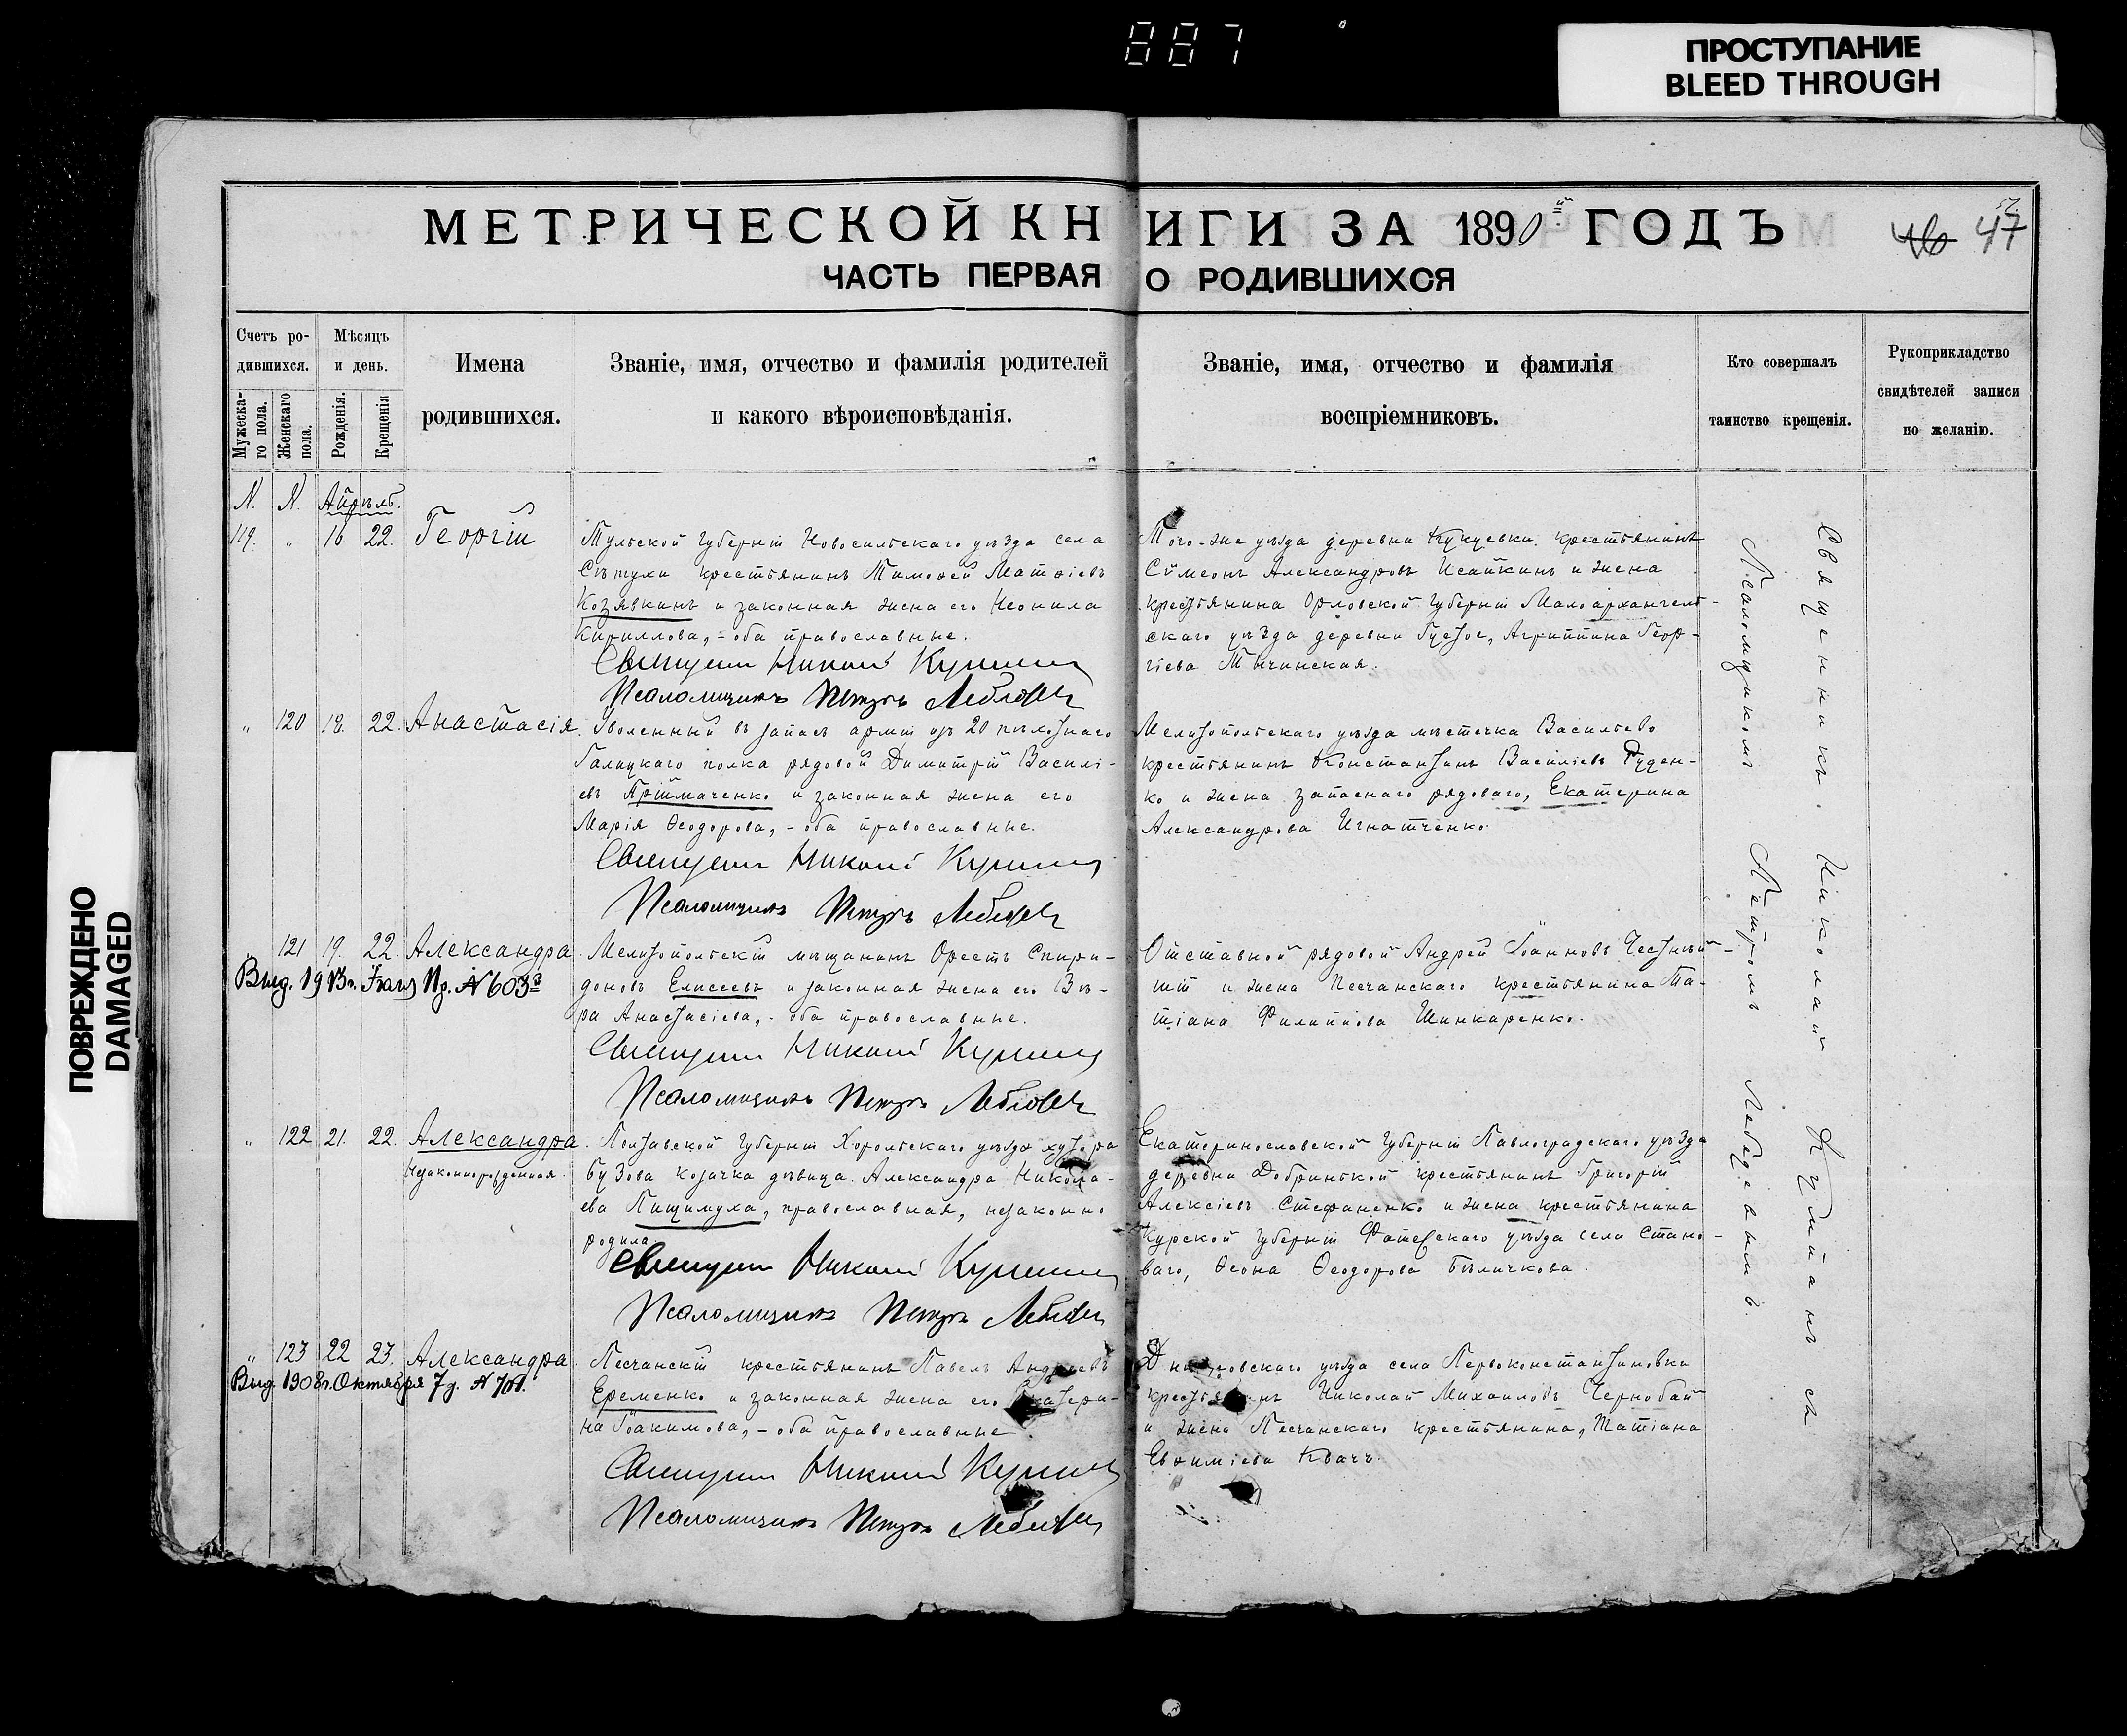 887
ПРОСТУПАНИЕ
BLEED THROUGH
ПОВРЕЖДЕНО
DAMAGED
МЕТРИЧЕСКОЙ КНИГИ ЗА 1890ый ГОДЪ
46 47
ЧАСТЬ ПЕРВАЯ О РОДИВШИХСЯ
Счетъ ро-
дившихся.
Мужеска-
го пола.
Женскаго
пола.
Мѣсяцъ
и день.
Рожденія.
Крещенія
Имена
родившихся.
Званіе, имя, отчество и фамилія родителей
и какого вѣроисповѣданія.
Званіе, имя, отчество и фамилія
воспріемниковъ.
Кто совершалъ
таинство крещенія.
Рукоприкладство
свидѣтелей записи
по желанію.
N. N. Апрѣль.
119. " 16. 22. Георгій
Тульской губерніи Новосильскаго уѣзда села
Сѣтухи крестьянинъ Тимоѳей Матѳіевъ
Козявкинъ и законная жена его Неонила
Кириллова, - оба православные.
Священникъ Николай
Псаломщикъ Петръ Лебедевъ
Того-же уѣзда деревни крестьянинъ
Симеонъ Александровъ Исайкинъ и жена
крестьянина Орловской губерніи Малоархангель-
скаго уѣзда деревни Агриппина Геор-
гіева
" 120 18. 22. Анастасія.
Уволенный въ запасъ арміи изъ 20 пѣхотнаго
Галицкаго полка рядовой Димитрій Василі-
евъ Приймаченко и законная жена его
Марія Ѳеодорова, - оба православные.
Священникъ Николай
Псаломщикъ Петръ Лебедевъ
Мелитопольскаго уѣзда мѣстечка Васильево
крестьянинъ Константинъ Василіевъ Руден-
ко и жена запаснаго рядоваго, Екатерина
Александрова Игнатченко.
121 19. 22. Александра.
Выд. 1913г. N 603
Мелитопольскій мѣщанинъ Орестъ Спири-
доновъ Елисеевъ и законная жена его Вѣ-
ра Анастасіева, - оба православные.
Священникъ Николай
Псаломщикъ Петръ Лебедевъ
Отставной рядовой Андрей Іоанновъ
и жена Песчанскаго крестьянина Та-
тіана Филиппова Шинкаренко.
" 122 21. 22. Александра.
Незаконнорожденная.
Полтавской губерніи Хорольскаго уѣзда хутора
Бузова козачка дѣвица Александра Никола-
ева Пищимуха, православная, незаконно
родила.
Священникъ Николай
Псаломщикъ Петръ Лебедевъ
Екатеринославской губерніи Павлоградскаго уѣзда
деревни Добринской крестьянинъ Григорій
Алексіевъ Стефаненко и жена крестьянина
Курской губерніи Фатежскаго уѣзда села Стано-
ваго, Ѳеодорова Бѣличкова.
" 123 22 23. Александра.
Выд. 1908г. Октября 7 д. N 701.
Песчанскій крестьянинъ Павелъ Андреевъ
Еременко и законная жена его Екатери-
на Іоакимова, - оба православные.
Священникъ Николай
Псаломщикъ Петръ Лебедевъ
Днѣпровскаго уѣзда села Первоконстантиновки
крестьянинъ Николай Михаиловъ Чернобай
и жена Песчанскаго крестьянина, Татіана
Евѳиміева Квачъ.
Священникъ Николай съ
Псаломщикомъ Петромъ Лебедевымъ